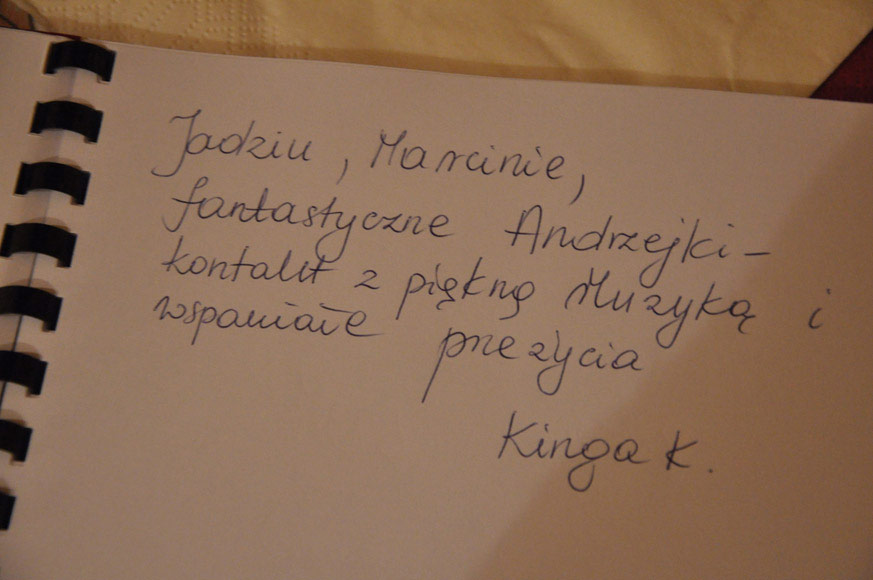 Jadziu, Marcinie,
fantastyczne Andrzejki –
kontakt z piękną Muzyką i
wspaniałe przeżycia
Kinga K.